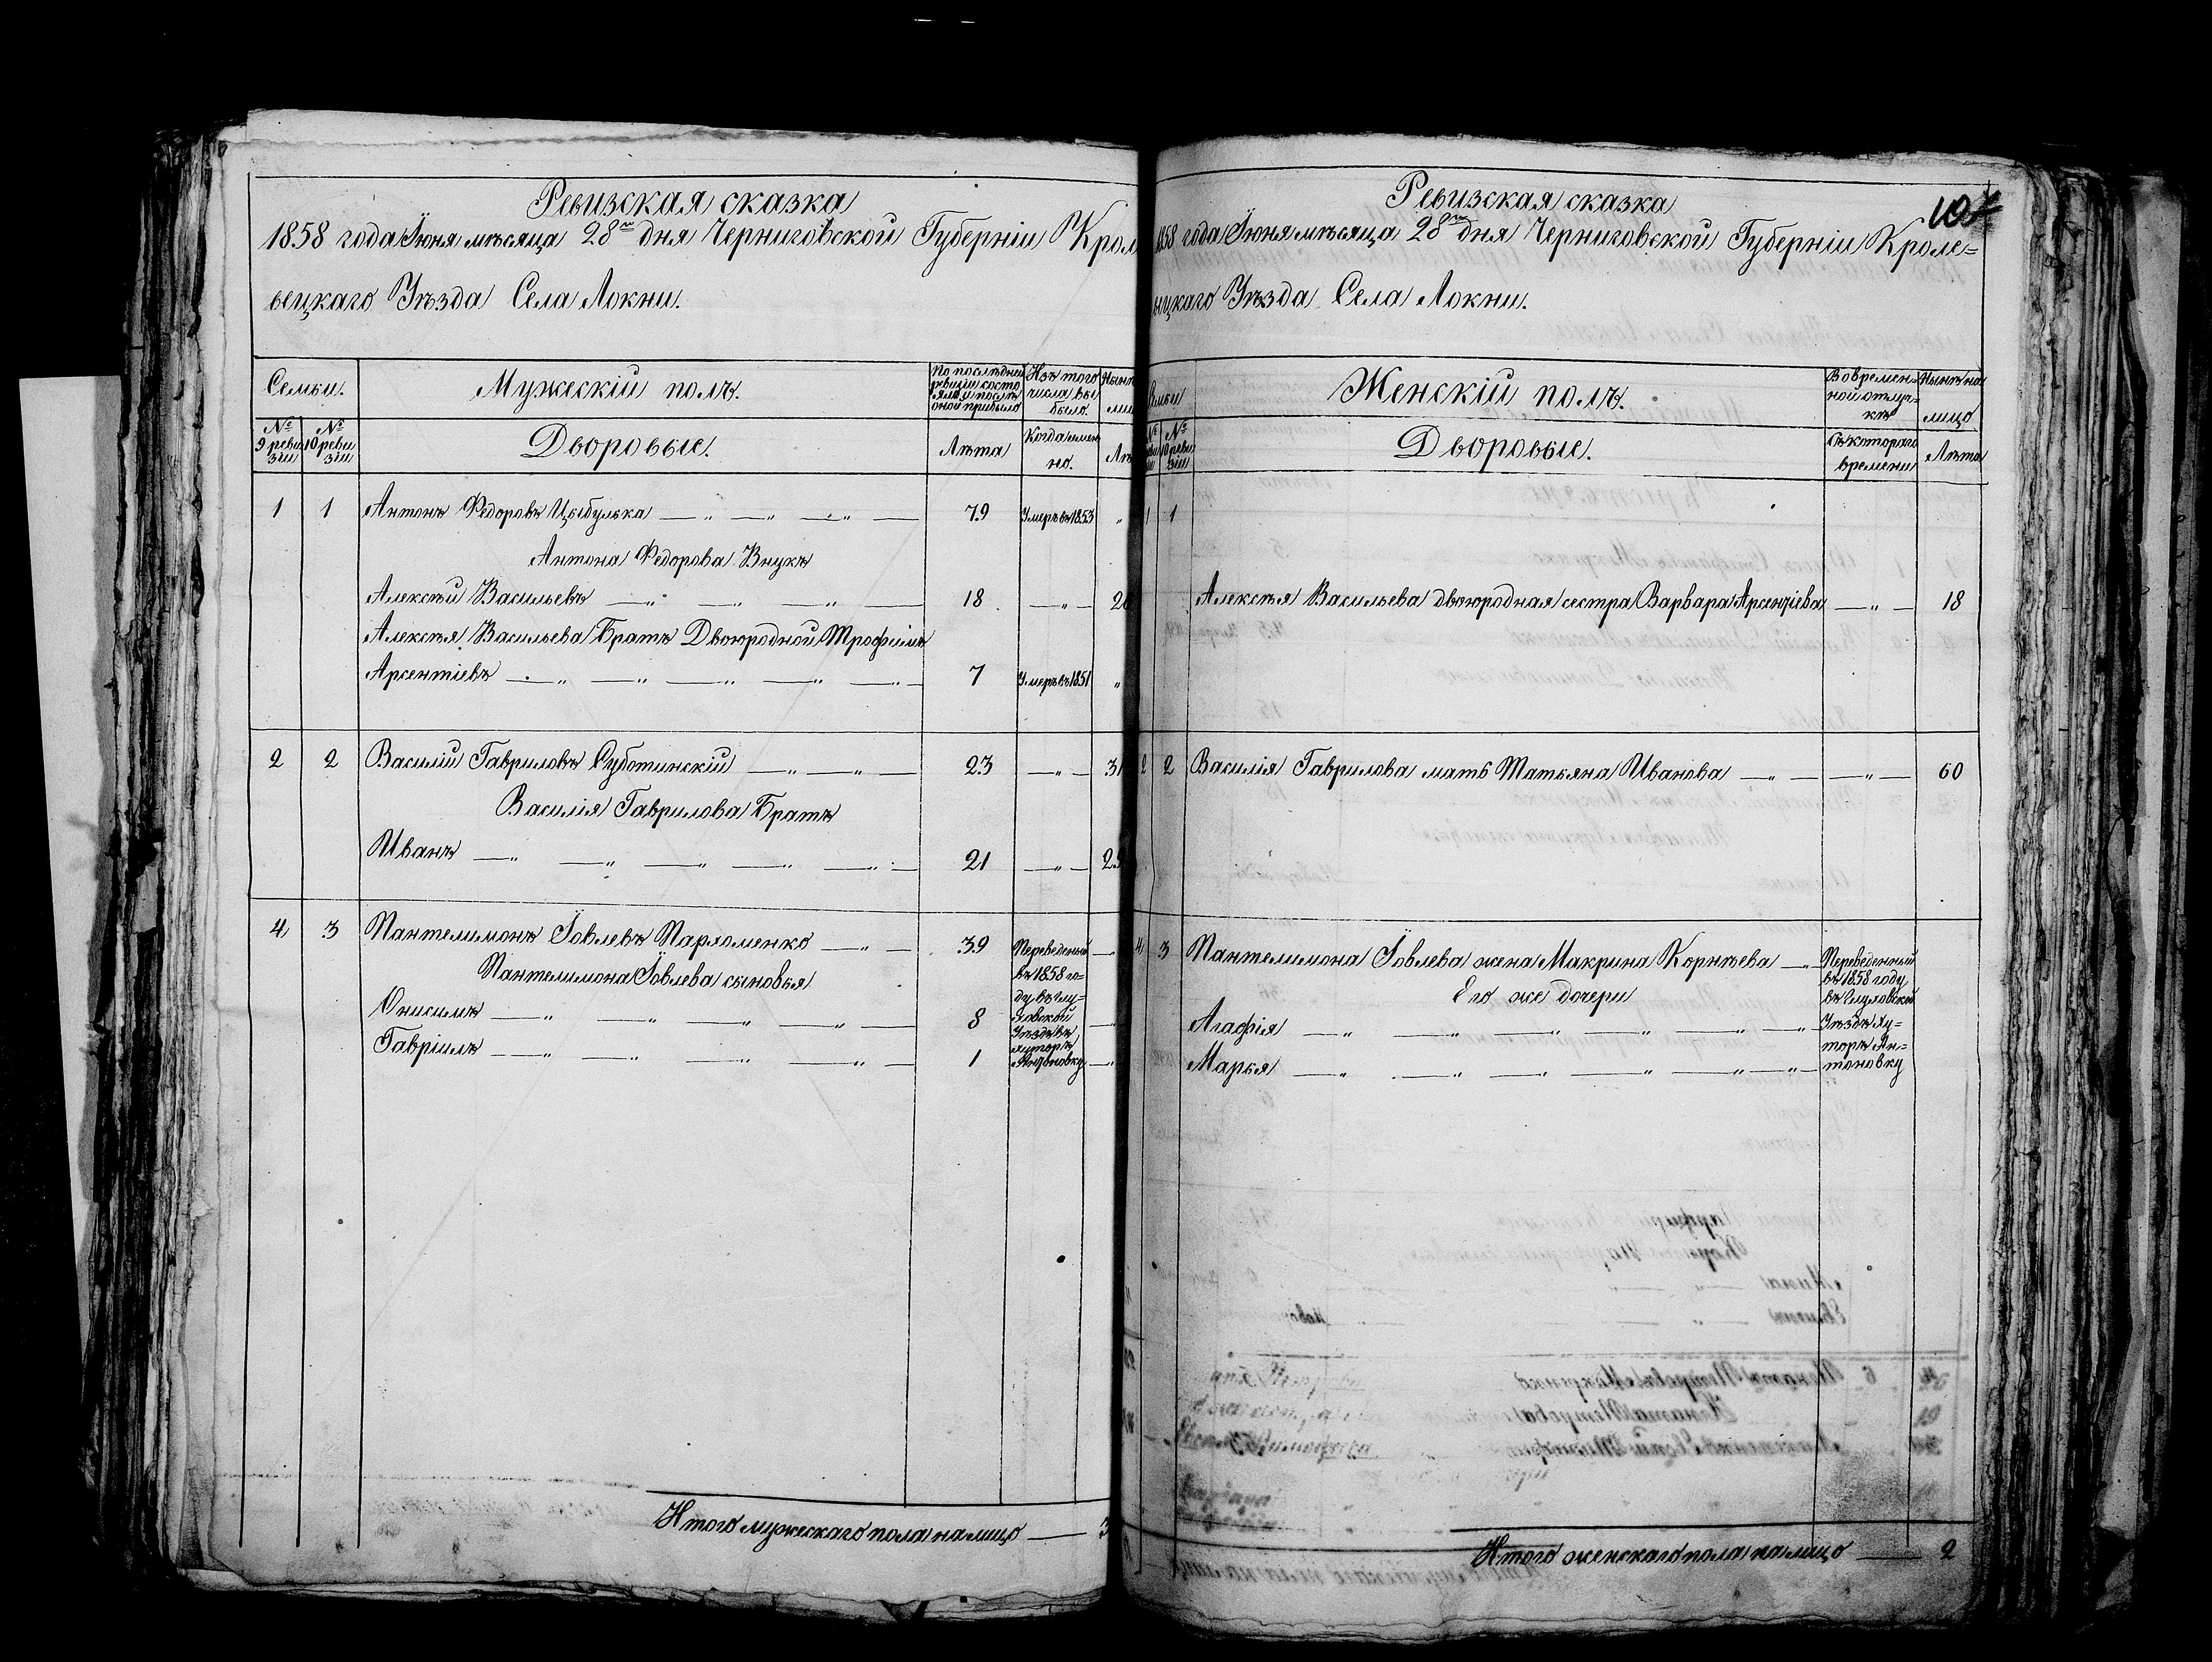 Ревизская сказка
1858 года Іюня мѣсяца 28го дня Черниговской Губерніи Крол
вецкаго Уѣзда Села Локни.
Семьи. Мужескій полъ. По послѣдней ревизіи состояло и послѣ оной прибыло Изъ того числа выбыло. Нынѣ
№ 9 ревизіи № 10 ревизіи Дворовые. Лѣта Когда именно. Лѣ
1 1 Антонъ Федоровъ Цыбулька — „ — „ — „ — 79 Умеръ въ 1853 „
Антона Федорова Внукъ
Алексѣй Васильевъ — „ — „ — „ — 18 — „ —
Алексѣя Васильева Братъ Двоюродной Трофимъ
Арсентіевъ — „ — „ — „ — „ — „ — 7 Умеръ въ 1851 „
2 2 Василій Гавриловъ Суботинскій — „ — „ — 23 — „ — 31
Василія Гаврилова Братъ
Иванъ — „ — „ — „ — „ — „ — 21 — „ — 29
4 3 Пантелимонъ Іовлевъ Пархоменко — „ — 39 Переведеный
Пантелимона Іовлева сыновья въ 1858 го-
ду въ Глу-
Онисимъ — „ — „ — „ — „ — 8 ховской
Уѣздъ въ
Гавріилъ — „ — „ — „ — „ — 1 хуторъ
Антоновку
Итого мужескаго пола на лицо — 3
10
Ревизская сказка
1858 года Іюня мѣсяца 28го дня Черниговской Губерніи Кроле-
вецкаго Уѣзда Села Локни.
Семьи Женскій полъ. Во времен-ной отлуч-кѣ Нынѣ на лицо
№ № 10 ревизіи Дворовые. Съ котораго времени Лѣта
1 1
Алексѣя Васильева двоюродная сестра Варвара Арсентіева — „ — 18
2 2 Василія Гаврилова мать Татьяна Иванова — „ — — „ — 60
4 3 Пантелимона Іовлева жена Макрина Корнѣева — „ Переведенный
въ 1858 году
Его же дочери въ Глуховской
Агафія — „ — „ — „ — „ — „ — „ Уѣздъ ху-
торъ Ан-
Марья — „ — „ — „ — „ — „ — „ — тоновку
Итого женскаго пола на лицо — 2